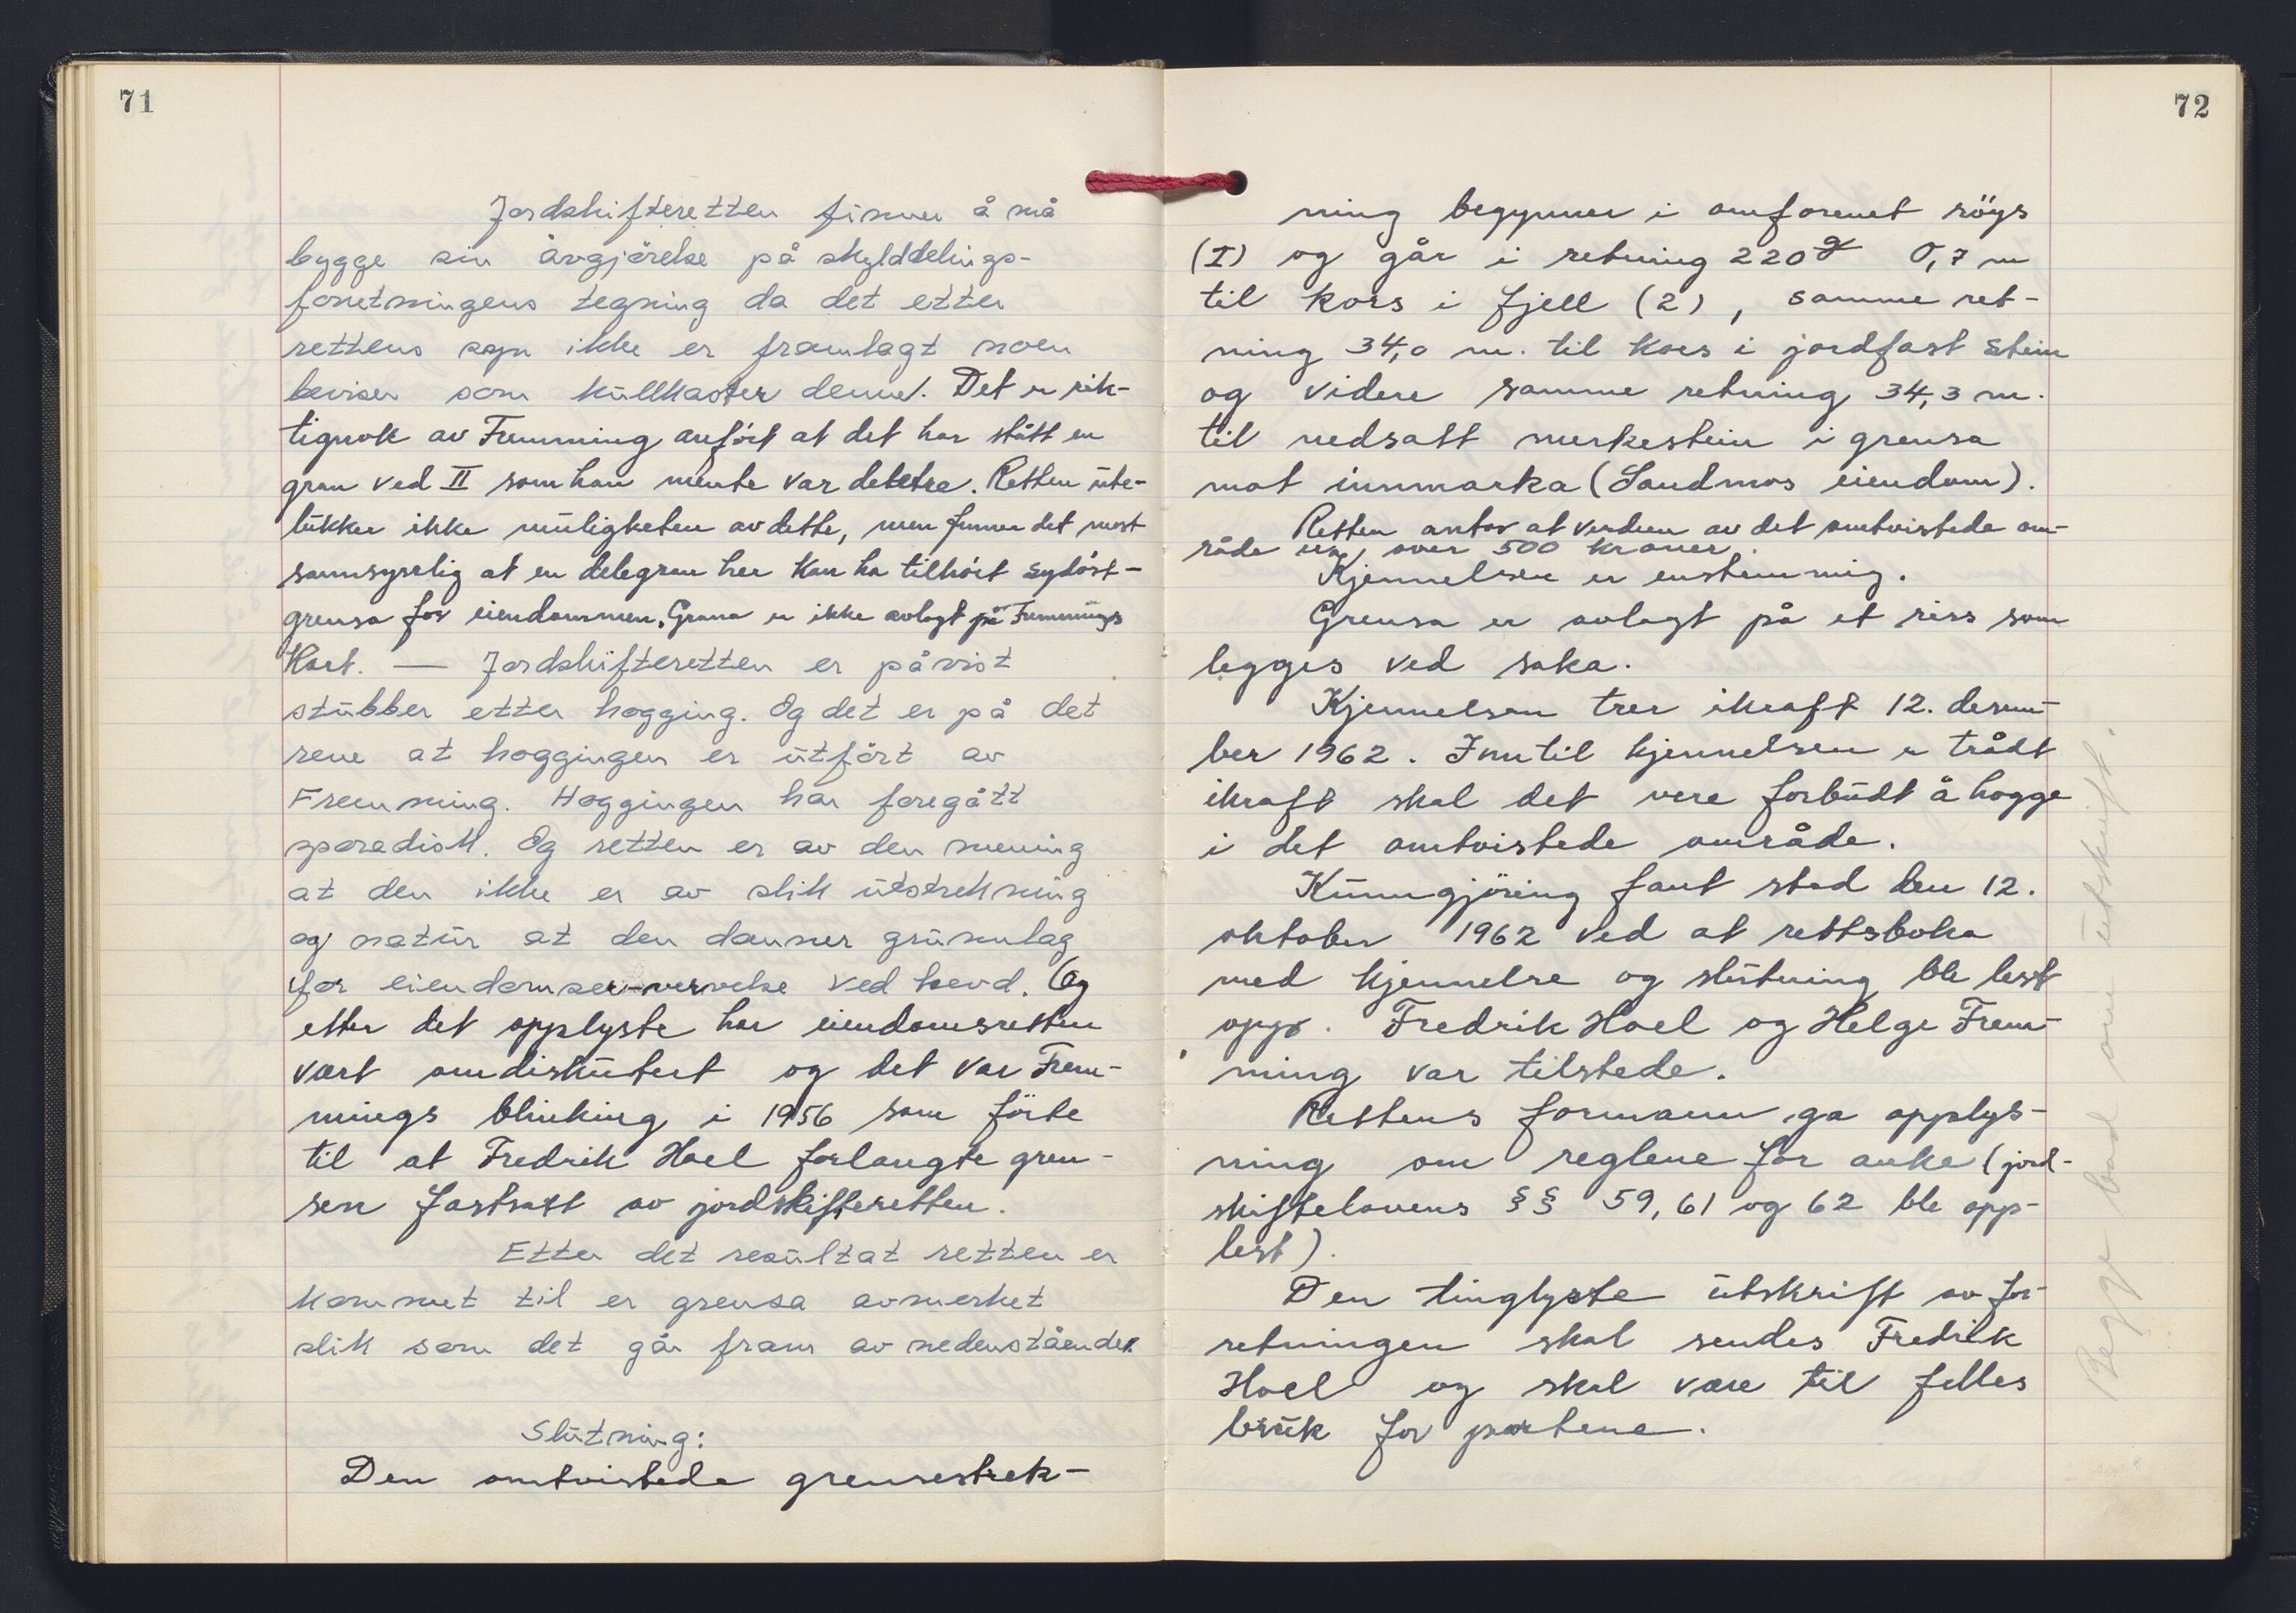 71
Jordskifteretten finner å må
bygge sin avgjørelse på skylddelings-
forretningens tegning da det etter
rettens syn ikke er framlagt noen
beviser som kullkaster denne. Det er rik-
tignok av Fremming anført at det har stått en
gran ved II som han mente var deletre. Retten ute-
lukker ikke muligheten av dette, men finner det mest
sannsynelig at en delegran her kan ha tilhört sydöst-
grensa for eiendommen. Grana er ikke avlagt på Fremmings
Kart. — Jordskifteretten er påvist
stubber etter hogging. Og det er på det
rene at hoggingen er utfört av
Fremming. Hoggingen har foregått
sporadisk. Og retten er av den mening
at den ikke er av slik utstrekning
og natur at den danner grunnlag
for eiendomservervelse ved hevd. Og
etter det opplyste har eiendomsretten
vært omdiskutert og det var Frem-
mings blinking i 1956 som förte
til at Fredrik Hoel forlangte gren-
sen fastsatt av jordskifteretten.
Etter det resultat retten er
kommet til er grensa avmerket
slik som det går fram av nedenstående
Slutning:
Den omtvistede grensestrek-
72
ning begynner i omforenet röys
(I) og går i retning 220g 0,7 m
til kors i fjell (2), samme ret-
ning 34,0 m. til kors i jordfast stein
og videre samme retning 34,3 m.
til nedsatt merkestein i grensa
mot innmarka (Sandmos eiendom).
Retten antar at verdien av det omtvistede om-
råde er over 500 kroner.
Kjennelsen er enstemmig.
Grensa er avlagt på et riss som
legges ved saka.
Kjennelsen trer ikraft 12. desem-
ber 1962. Inntil kjennelsen er trådt
ikraft skal det vere forbudt å hogge
i det omtvistede område.
Kunngjöring fant sted den 12.
oktober 1962 ved at rettsboka
med kjennelse og slutning ble lest
opp. Fredrik Hoel og Helge Frem-
ming var tilstede.
Rettens formann ga opplys-
ning om reglene for anke (jord-
skiftelovens §§ 59, 61 og 62 ble opp-
lest).
Den tinglyste utskrift av for-
retningen skal sendes Fredrik
Hoel og skal være til felles
bruk for partene.
Begge bad om utskrift.